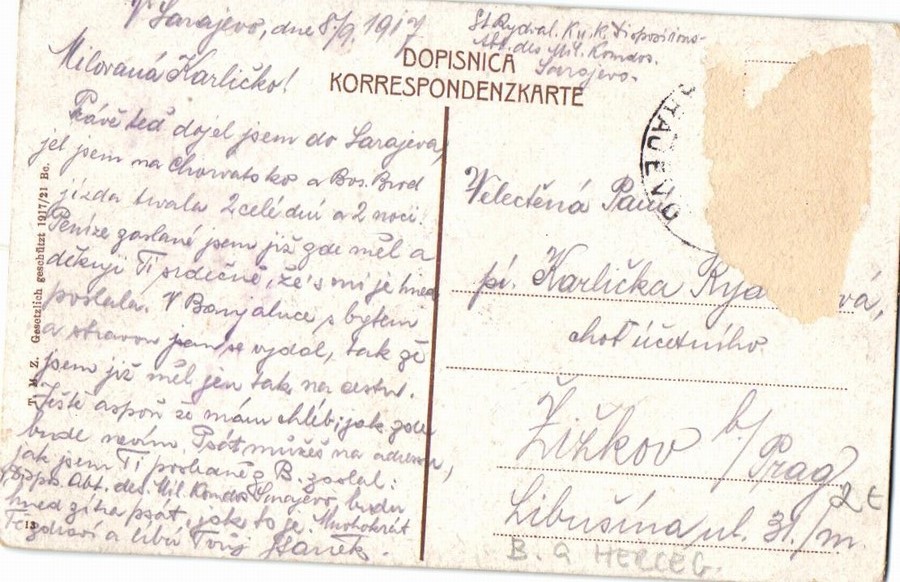 V Sarajevo, dne 8/9. 1917
St. Rydval. K.u.K. Dispositions-
Abt. des Mil. Komdos.
Sarajevo.
DOPISNICA
KORRESPONDENZKARTE
Milovaná Karličko!
Právě teď dojel jsem do Sarajeva,
jel jsem na Chorvatsko a Bos. Brod
jízda trvala 2 celé dni a 2 noci.
Peníze zaslané jsem již zde měl a
děkuji Ti srdečně, že's mi je hned
poslala. V Banjaluce s bytem
a stravou jsem se vydal, tak že
jsem již měl jen tak na cestu.
Ještě aspoň že mám chléb, jak zde
bude nevím. Psát můžeš na adresu,
jak jsem Ti posledně z B. zaslal:
Disp. Abt. des. Mil. Komdos Sarajevo, budu
hned zítra psát, jak to je. Mnohokrát
Tě zdraví a líbá Tvůj Staněk.
T. M. Z. Gesetzlich geschützt 1917/21 Bc.
13
Velectěná Paní
pí. Karlička Ryd vá,
choť účetního
Žižkov b/Prag
Libušina ul. 31./m.
2 €
B. A HERCEG.